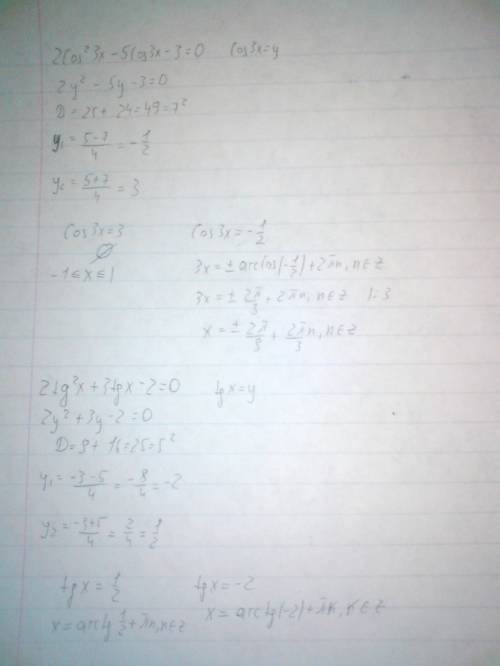 2cos²3x - 5cos3x - 3 = 0   cos3x = y
2y² - 5y - 3 = 0
D = 25 + 24 = 49 = 7²
y₁ = (5-7)/4 = -1/2
y₂ = (5+7)/4 = 3
cos3x = 3   cos3x = -1/2
∅
-1 ≤ x ≤ 1   3x = ± arccos(-1/2) + 2πn, n∈z
3x = ± 2π/3 + 2πn, n∈z   |: 3
x = ± 2π/9 + 2π/3 n, n∈z
2tg²x + 3tgx - 2 = 0   tgx = y
2y² + 3y - 2 = 0
D = 9 + 16 = 25 = 5²
y₁ = (-3-5)/4 = -8/4 = -2
y₂ = (-3+5)/4 = 2/4 = 1/2
tgx = 1/2   tgx = -2
x = arctg 1/2 + πn, n∈z   x = arctg(-2) + πk, k∈z